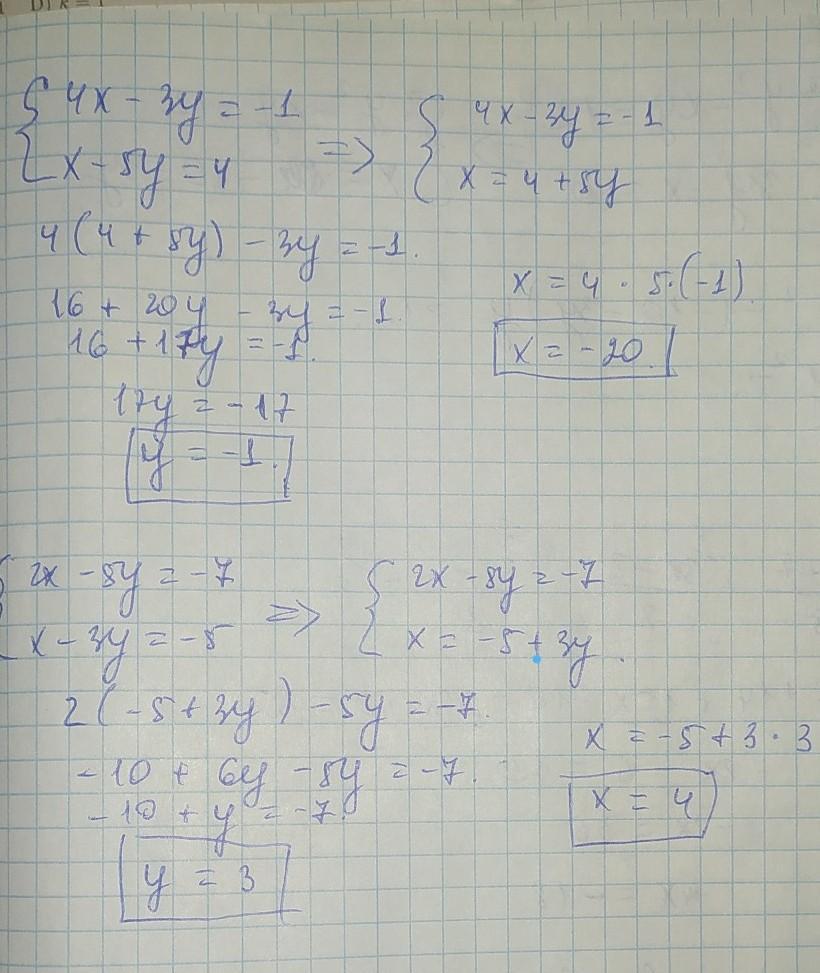 D) k = 1
{ 4x - 3y = -1 => { 4x - 3y = -1
x - 5y = 4 x = 4 + 5y
4(4 + 5y) - 3y = -1.
16 + 20y - 3y = -1.
16 + 17y = -1.
17y = -17
y = -1.
x = 4 · 5·(-1)
x = -20.
{ 2x - 5y = -7 => { 2x - 5y = -7
x - 3y = -5 x = -5 + 3y.
2(-5 + 3y) - 5y = -7.
-10 + 6y - 5y = -7.
-10 + y = -7.
y = 3
x = -5 + 3 · 3
x = 4